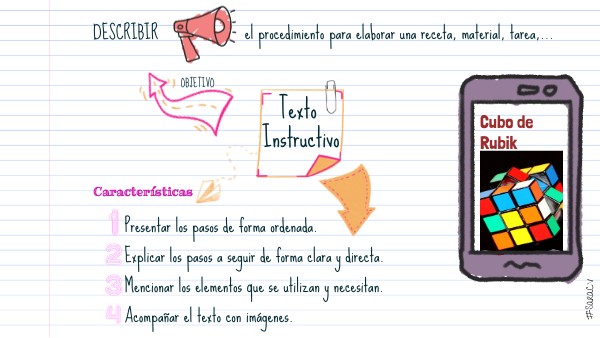 DESCRIBIR el procedimiento para elaborar una receta, material, tarea,...
OBJETIVO
Texto
Instructivo
Cubo de
Rubik
Características
1 Presentar los pasos de forma ordenada.
2 Explicar los pasos a seguir de forma clara y directa.
3 Mencionar los elementos que se utilizan y necesitan.
4 Acompañar el texto con imágenes.